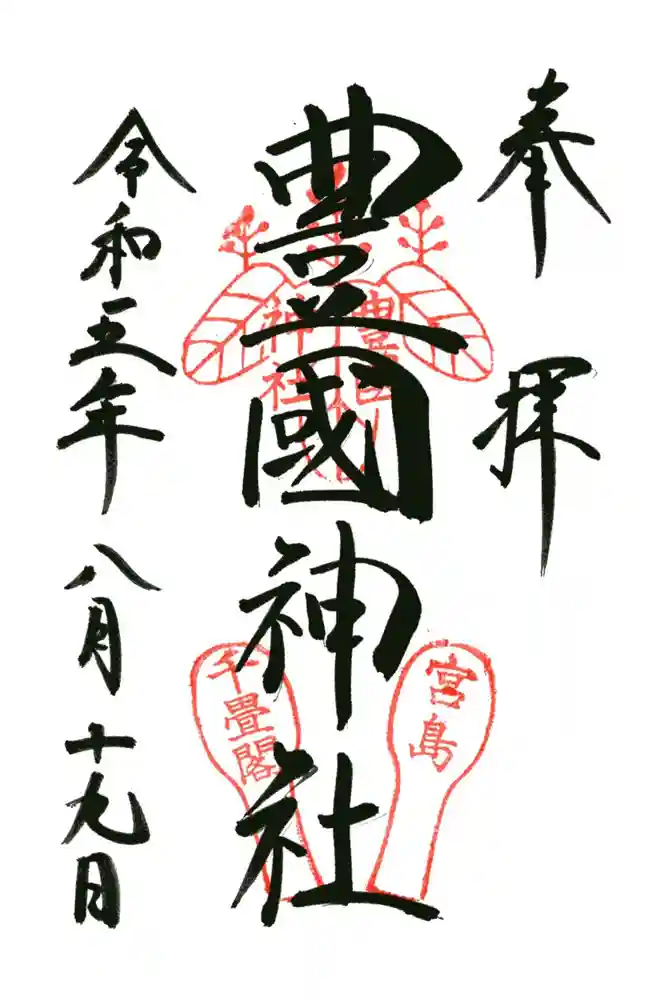 奉拝
豊國神社
令和五年八月十九日
豊国
神社
宮島
千畳閣